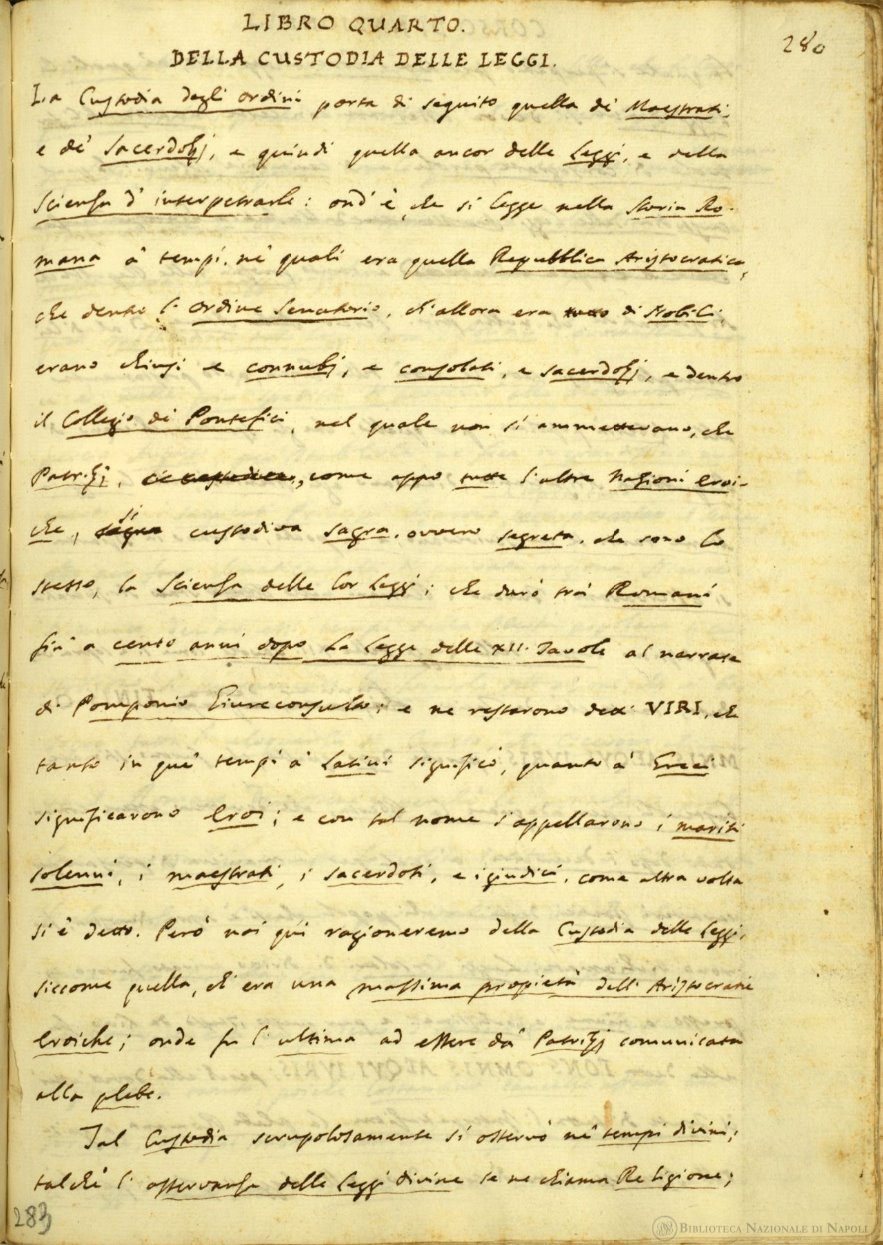 LIBRO QUARTO.
280
DELLA CUSTODIA DELLE LEGGI.
La Custodia degli ordini porta di seguito quella de' Maestrati,
e de' Sacerdozj, e quindi quella ancor delle Leggi, e della
Scienza d' interpetrarle: ond' è, che si legge nella Storia Ro-
mana a' tempi, ne' quali era quella Repubblica Aristocratica,
che dentro l' Ordine Senatorio, ch'allora era tutto di Nobili,
erano chiusi e connubj, e consolati, e sacerdozj, e dentro
il Collegio de' Pontefici, nel quale non si ammettevano, che
Patrizj, come appo tutte l'altre Nazioni Eroi-
che, si custodiva sagra, ovvero segreta, che sono lo
stesso, la Scienza delle lor Leggi; che durò trai Romani
fin' a cento anni dopo la Legge delle XII. Tavole al narrare
di Pomponio Giureconsulto; e ne restarono detti VIRI, che
tanto in que' tempi a' Latini significò, quanto a' Greci
significarono Eroi; e con tal nome s'appellarono i mariti
solenni, i maestrati, i sacerdoti, e i giudici, come altra volta
si è detto. Però noi qui ragioneremo della Custodia delle Leggi,
siccome quella, ch' era una massima propietà dell' Aristocrazie
Eroiche; onde fu l' ultima ad essere da' Patrizj comunicata
alla plebe.
Tal Custodia scrupolosamente si osservò ne' tempi divini;
talchè l' osservanza delle Leggi divine se ne chiama Religione;
283
BIBLIOTECA NAZIONALE DI NAPOLI